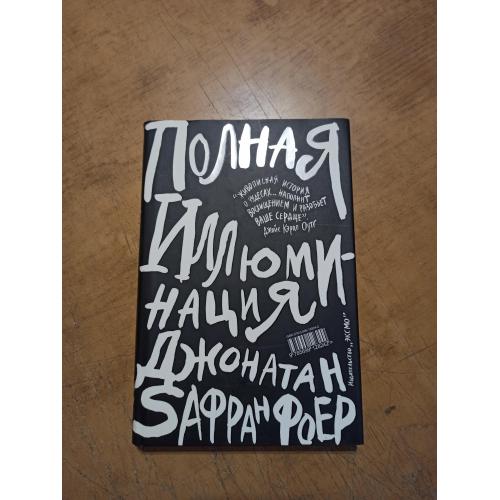 ПОЛНАЯ
"ЖИВОПИСНАЯ ИСТОРИЯ
О ЧУДЕСАХ... НАПОЛНИТ
ВОСХИЩЕНИЕМ И РАЗОБЬЕТ
ВАШЕ СЕРДЦЕ"
ДЖОЙС КЭРОЛ ОУТС
ИЛЛЮМИ-
НАЦИЯ
ИЗДАТЕЛЬСТВО "ЭКСМО"
ДЖОНАТАН
SАФРАН ФОЕР